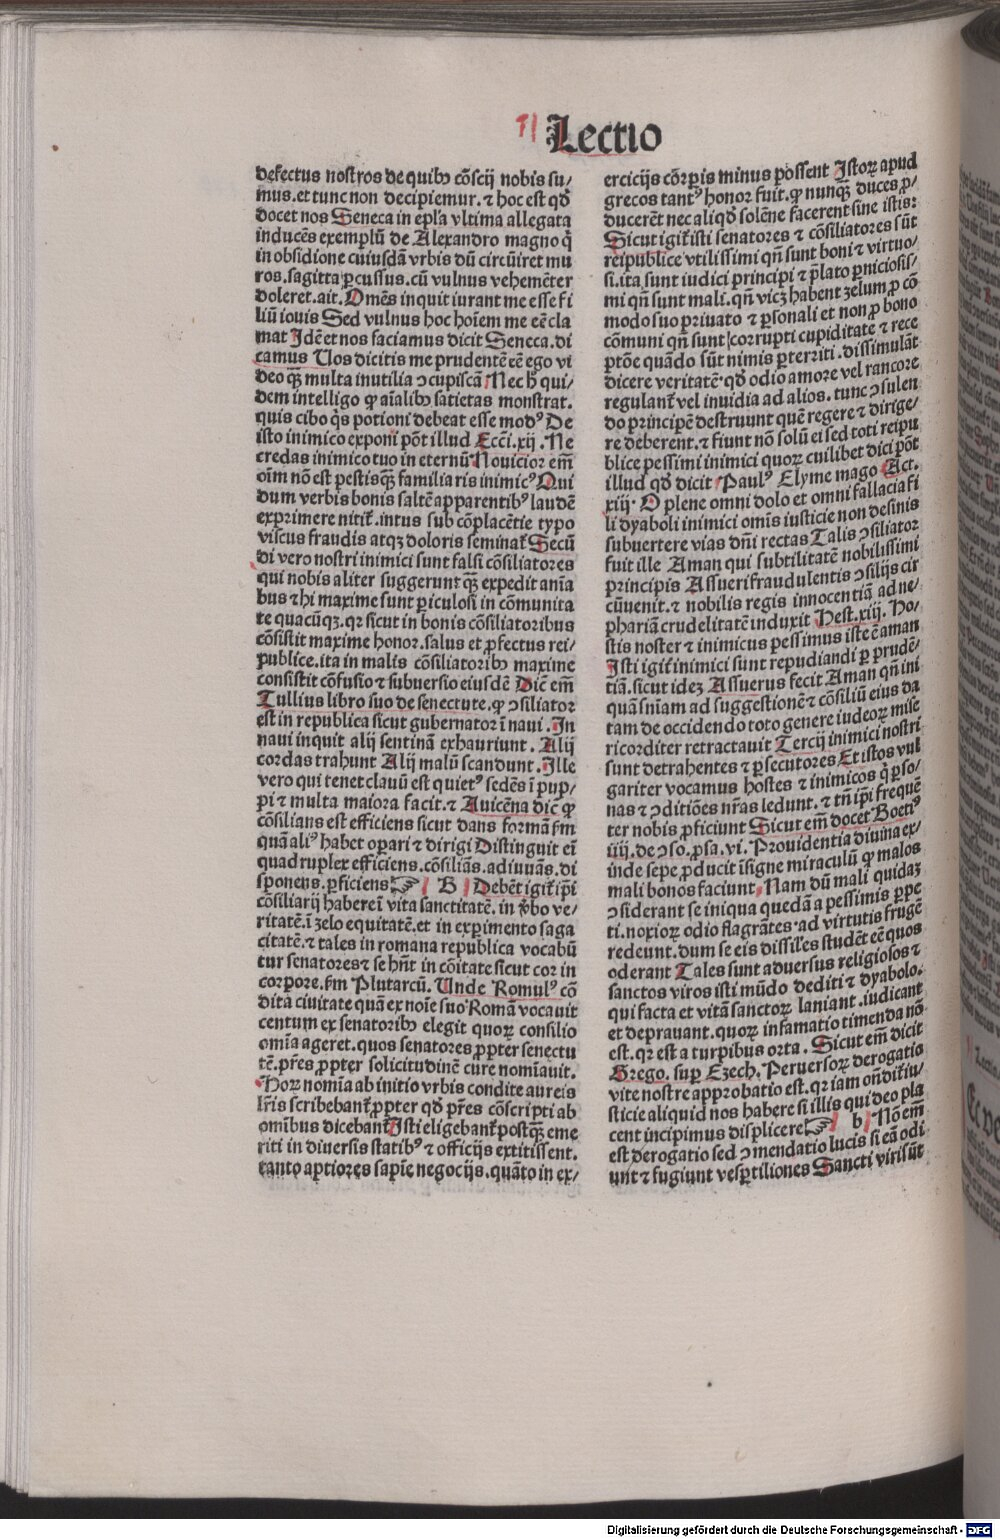 Lectio
defectus nostros de quibꝰ cõscij nobis su/
mus.et tunc non decipiemur.⁊ hoc est qḋ
docet nos Seneca in ep̄la vltima allegata
inducẽs exemplũ de Alexandro magno q̇
in obsidione cuiusdã vrbis dũ circũiret mu
ros.sagitta ꝑcussus.cũ vulnus vehemẽter
doleret.ait.Omẽs inquit iurant me esse fi
liũ iouis Sed vulnus hoc hoĩem me eẽ cla
mat Idẽ et nos faciamus dicit Seneca.di
camus Uos dicitis me prudentẽ eẽ ego vi
deo qꝫ multa inutilia ↄcupiscã Nec h̄ qui/
dem intelligo ꝙ aĩalibꝰ satietas monstrat.
quis cibo q̇s potioni debeat esse modꝰ De
isto inimico exponi põt illud Ecc̃i.xij.Ne
credas inimico tuo in eternũ Nouicior em̃
oĩm nõ est pestis qꝫ familiaris inimicꝰ Qui
dum verbis bonis saltẽ apparentibꝰ laudẽ
exprimere nitit̃.intus sub cõplacẽtie typo
viscus fraudis atqꝫ doloris seminat̃ Secũ
di vero nostri inimici sunt falsi cõsiliatores
qui nobis aliter suggerunt qꝫ expedit anĩa
bus ⁊ hi maxime sunt ꝑiculosi in cõmunita
te quacũqꝫ.qꝛ sicut in bonis cõsiliatoribus
cõsistit maxime honor.salus et ꝓfectus rei/
publice.ita in malis cõsiliatoribꝰ maxime
consistit cõfusio ⁊ subuersio eiusdẽ Dic̃ em̃
Tullius libro suo de senectute.ꝙ ↄsiliator
est in republica sicut gubernator ĩ naui.In
naui inquit alij sentinã exhauriunt.Alij
cordas trahunt Alij malũ scandunt.Ille
vero qui tenet clauũ est quietꝰ sedẽs ĩ pup/
pi ⁊ multa maiora facit.⁊ Auicẽna dic̃ ꝙ
cõsilians est efficiens sicut dans formã ẜm
quã aliꝰ habet oꝑari ⁊ dirigi Distinguit em̃
quadruplex efficiens.cõsiliãs.adiuuãs.di
sponens.ꝑficiens ☞ B Debẽt igit̃ ip̃i
cõsiliarij habere ĩ vita sanctitatẽ.in v̓bo ve/
ritatẽ.ĩ zelo equitatẽ.et in exꝑimento saga
citatẽ.⁊ tales in romana republica vocabũ
tur senatores ⁊ se hñt in cõitate sicut cor in
corpore.ẜm Plutarcũ.Unde Romulꝰ cõ
dita ciuitate quã ex noĩe suo Romã vocauit
centum ex senatoribꝰ elegit quoꝝ consilio
omĩa ageret.quos senatores ꝓpter senectu
tẽ.p̃res ꝓpter solicitudinẽ cure nomĩauit.
Hoꝝ nomĩa ab initio vrbis condite aureis
lr̃is scribebant̃ ꝓpter qḋ p̃res cõscripti ab
omĩbus dicebant̃ Isti eligebant̃ postqꝫ eme
riti in diuersis statibꝰ ⁊ officijs extitissent.
tanto aptiores sapĩe negocijs.quãto in ex/
ercicijs cõrꝑis minus possent Istoꝝ apud
grecos tantꝰ honor fuit.ꝙ nunqꝫ duces ꝓ/
ducerẽt nec aliqḋ solẽne facerent sine istis:
Sicut igit̃ isti senatores ⁊ cõsiliatores sũt
reipublice vtilissimi qñ sunt boni ⁊ virtuo/
si.ita sunt iudici principi ⁊ p̃lato ꝑniciosis/
mi qñ sunt mali.qñ vicꝫ habent zelum ꝓ cõ
modo suo priuato ⁊ ꝑsonali et non ꝓ bono
cõmuni qñ sunt corrupti cupiditate ⁊ rece
ptõe quãdo sũt nimis ꝑterriti.dissimulãt
dicere veritatẽ.qḋ odio amore vel rancore
regulant̃ vel inuidia ad alios.tunc ↄsulen
do principẽ destruunt quẽ regere ⁊ dirige/
re deberent.⁊ fiunt nõ solũ ei sed toti reipu
blice pessimi inimici quoꝝ cuilibet dici põt
illud qḋ dicit Paulꝰ Elyme mago Act.
xiij.O plene omni dolo et omni fallacia fi
li dyaboli inimici omĩs iusticie non desinis
subuertere vias dñi rectas Talis ↄsiliator
fuit ille Aman qui subtilitatẽ nobilissimi
principis Assueri fraudulentis ↄsilijs cir
cũuenit.⁊ nobilis regis innocentiã ad ne/
phariã crudelitatẽ induxit Hest.xiij.Ho/
stis noster ⁊ inimicus pessimus iste ẽ aman
Isti igit̃ inimici sunt repudiandi ꝑ prudẽ/
tiã.sicut idez Assuerus fecit Aman qñ ini
quã sñiam ad suggestionẽ ⁊ cõsiliũ eius da
tam de occidendo toto genere iudeoꝝ mise
ricorditer retractauit Tercij inimici nostri
sunt detrahentes ⁊ ꝑsecutores Et istos vul
gariter vocamus hostes ⁊ inimicos q̇ ꝑso/
nas ⁊ ↄditiões nr̃as ledunt.⁊ tñ ip̃i frequẽ
ter nobis ꝓficiunt Sicut em̃ docet Boetiꝰ
iiij.de ↄso.ꝓsa.vi.Prouidentia diuina ex/
inde sepe ꝓducit ĩsigne miraculũ ꝙ malos
mali bonos faciunt.Nam dũ mali quidaꝫ
ↄsiderant se iniqua quedã a pessimis ꝑpe
ti.noxioꝝ odio flagrãtes ad virtutis frugẽ
redeunt.dum se eis dissiles studẽt eẽ quos
oderant Tales sunt aduersus religiosos ⁊
sanctos viros isti mũdo dediti ⁊ dyabolo.
qui facta et vitã sanctoꝝ laniant.iudicant
et deprauant.quoꝝ infamatio timenda nõ
est.qꝛ est a turpibus orta.Sicut em̃ dicit
Grego.suꝑ Ezech.Peruersoꝝ derogatio
vite nostre approbatio est.qꝛ iam oñdit̃ iu/
sticie aliquid nos habere si illis qui deo pla
cent incipimus displicere ☞ b Nõ em̃
est derogatio sed ↄmendatio lucis si eã odi
unt ⁊ fugiunt vesꝑtiliones Sancti viri sũt
Digitalisierung gefördert durch die Deutsche Forschungsgemeinschaft - DFG